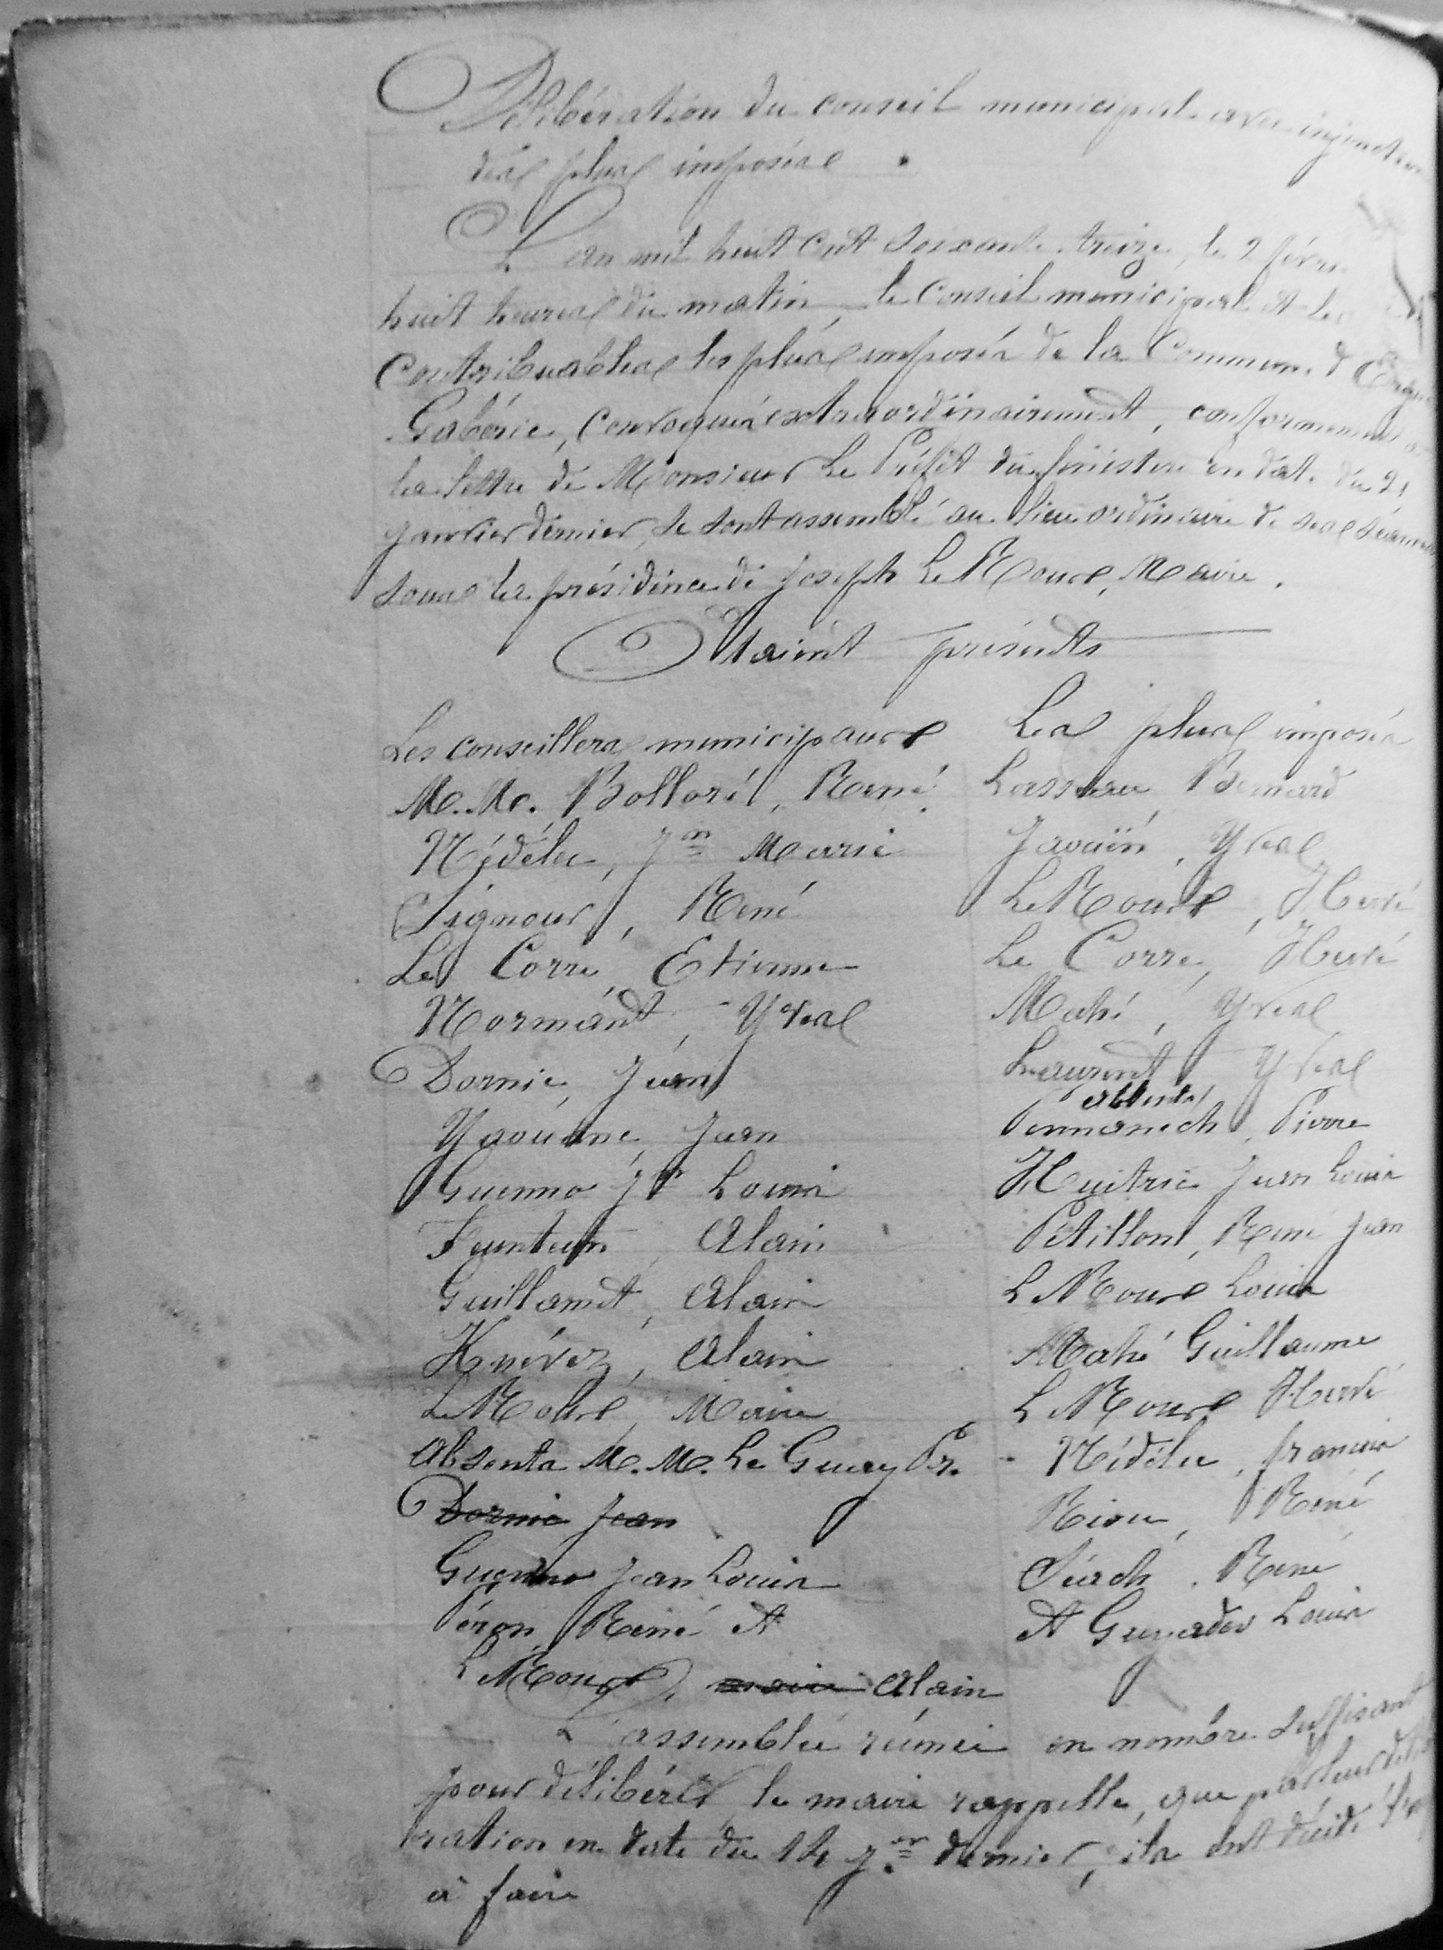 Délibération du conseil municipal avec injonction
des plus imposés.
L'an mil huit cent soixante treize, le 2 févri
huit heures du matin, le Conseil municipal et les
Contribuables les plus imposés de la Commune d'Ergué
Gabéric, convoqués extraordinairement, conformément à
la lettre de Monsieur Le Préfet du finistère en date du 21
janvier dernier, se sont assemblé au lieu ordinaire de ses séances
sous la présidence de Joseph Le Roux, Maire.
Etaient présents
Les conseillers municipaux
M.M. Bolloré, René.
Nédélec, Jn Marie
Signour, René
Le Corre, Etienne
Normant, Yves
Dornic, Jean
Yaouanc, Jean
Guenno Jn Louis
Feunteun, Alain
Guillamet, Alain
Knévez, Alain
Le Roux, Maire
Absents M.M. Le Guay Pr.
Dornic Jean
Guenno Jean Louis
Péron, René et
Le Roux, maire Alain
Les plus imposés
Lasserre Bernard
Jaouën, Yves
Le Roux, Hervé
Le Corre, Hervé
Mahé, Yves
Laurent, Yves
absents
Pennanech, Pierre
Huitric Jean Louis
Pétillon, René Jean
Le Roux Louis
Mahé Guillaume
Le Roux Hervé
Nédélec, francois
Riou, René
Sérch, René
et Guyader Louis
L'assemblée réunie en nombre suffisant
pour délibérer le maire rappelle, que par leur délibé
ration en date du 14 jer dernier, ils ont décidé
à faire